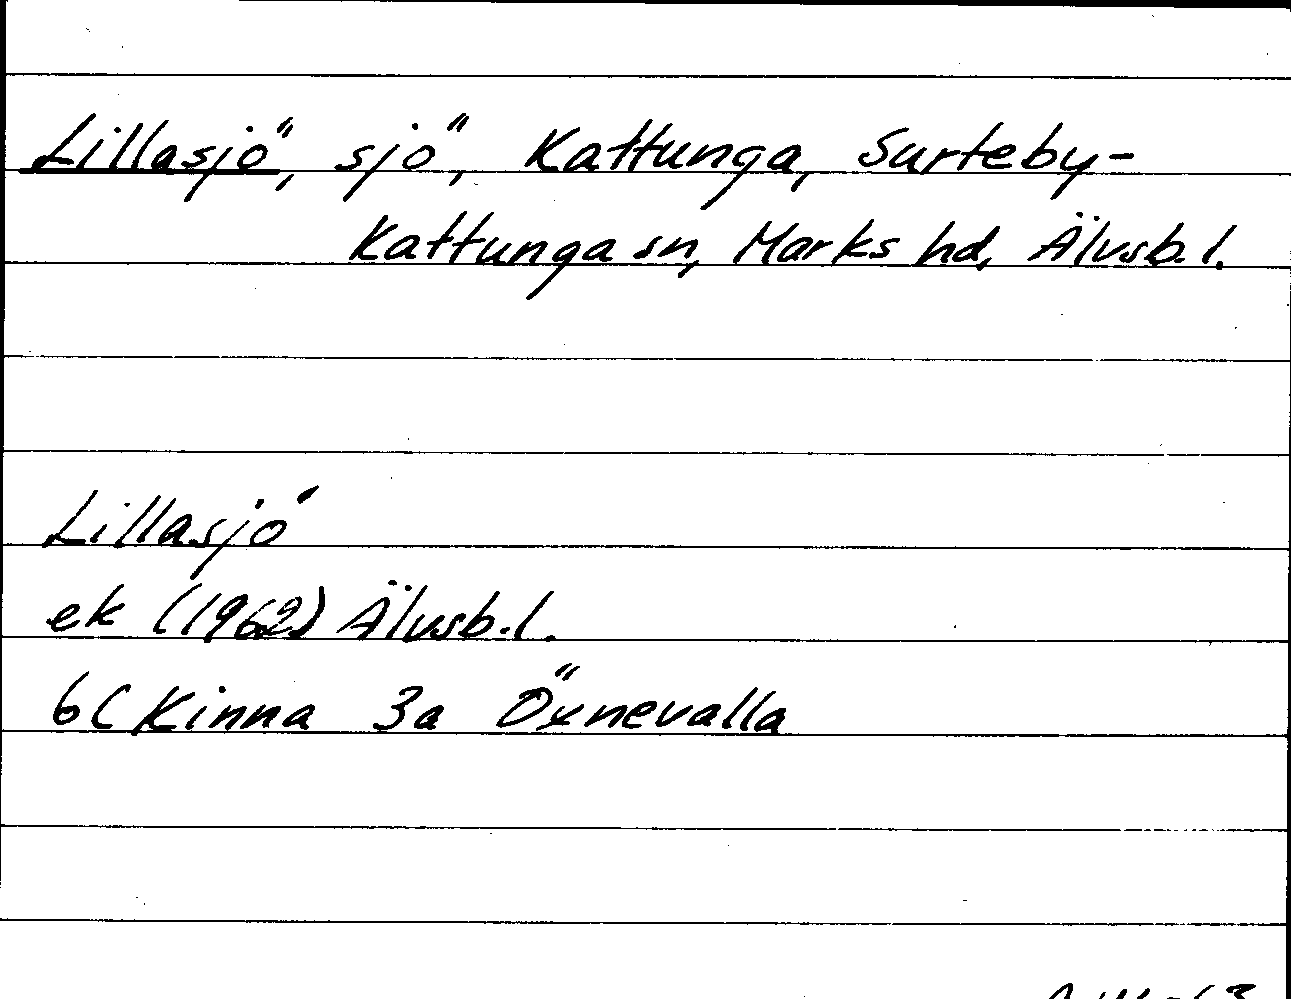 Lillasjö, sjö, Kattunga, Surteby-
Kattunga sn, Marks hd, Älvsb. l.
Lillasjö
ek (1962) Älvsb. l.
6C Kinna 3a Öxnevalla